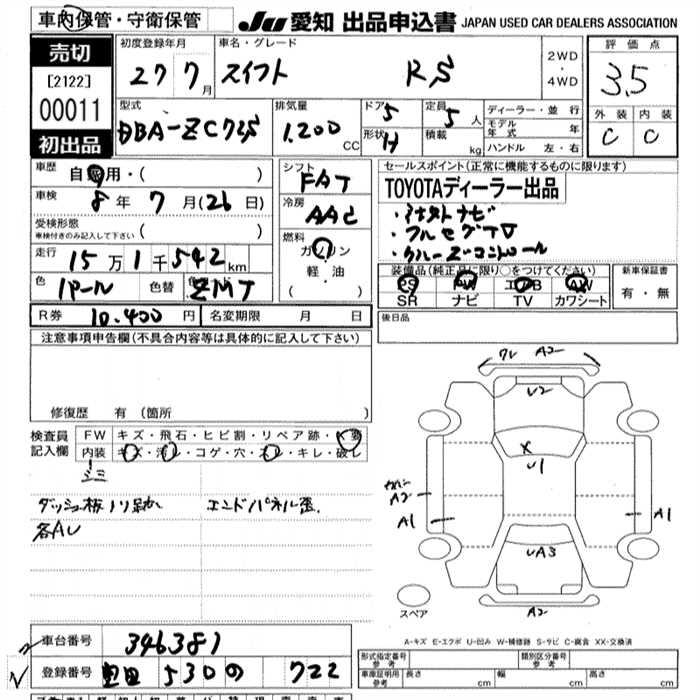 車内保管・守衛保管
JU 愛知 出品申込書 JAPAN USED CAR DEALERS ASSOCIATION
売切
[2122]
00011
初出品
初度登録年月
27 7 月
車名・グレード
スイフト RS
2WD
・
4WD
評価点
3.5
外装 内装
C C
型式
DBA-ZC72S
排気量
1.200 CC
ドア 5
形状 H
定員 5 人
積載 kg
ディーラー・並行
モデル年式 年
ハンドル 左・右
車歴
自家用・( )
車検
8 年 7 月(26 日)
受検形態
車検付きのみ記入して下さい ( )
走行
15 万 1 千 542 km
色 パール 色替 色 ZMT
シフト
FAT
冷房
AAC
燃料
ガソリン
軽・油
( )
セールスポイント(正常に機能するものに限ります)
TOYOTAディーラー出品
・フルセグTV
・クルーズコントロール
装備品(純正品に限り○をつけてください)
PS PW エアB AW
SR ナビ TV カワシート
新車保証書
有・無
R券 10.400 円 名変期限 月 日
後日品
注意事項申告欄(不具合内容等は具体的に記入して下さい)
修復歴 有 (箇所 )
検査員記入欄
FW キズ・飛石・ヒビ割・リペア跡・X要
内装 キズ・汚レ・コゲ・穴・スレ・キレ・破レ
シミ
ダッシュ板ノリ跡 エンドパネル歪.
各AU
ワレ A2
U2
X
U1
A2
A1
A1
UA3
A2
スペア
A-キズ E-エクボ U-凹み W-補修跡 S-サビ C-腐食 XX-交換済
車台番号 346381
登録番号 豊田 530 の 722
型式指定番号 参考
類別区分番号 参考
車庫証明用 参考 長さ cm 幅 cm 高さ cm